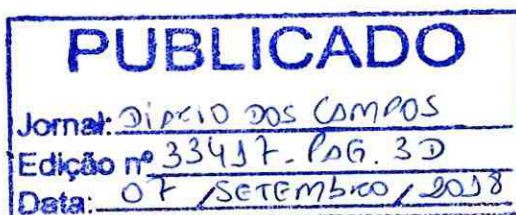 PUBLICADO
Jornal: DIÁRIO DOS CAMPOS
Edição nº 33417 - PAG. 3D
Data: 07 / SETEMBRO / 2018